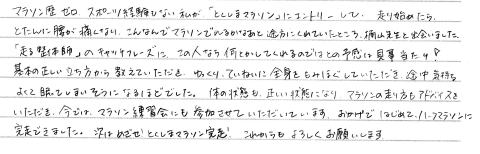 マラソン歴ゼロ スポーツ経験もない私が、「とくしまマラソン」にエントリーして、走り始めたら、
とたんに腰が痛くなり、こんなんでマラソンでれるかなあと途方にくれていたところ、楠山先生と出会いました。
「走る整体師」のキャッチフレーズに、この人なら何とかしてくれるのではとの予感は見事当たり！
基本の正しい立ち方から教えていただき、ゆっくり、ていねいに全身をもみほぐしていただき、途中気持ち
よくて眠てしまいそうになるほどでした。体の状態も、正しい状態になり、マラソンの走り方もアドバイスを
いただき、今では、マラソン練習会にも参加させていただいています。おかげではじめて、ハーフマラソンに
完走できました。次はめざせ！とくしまマラソン完走！これからもよろしくお願いします。